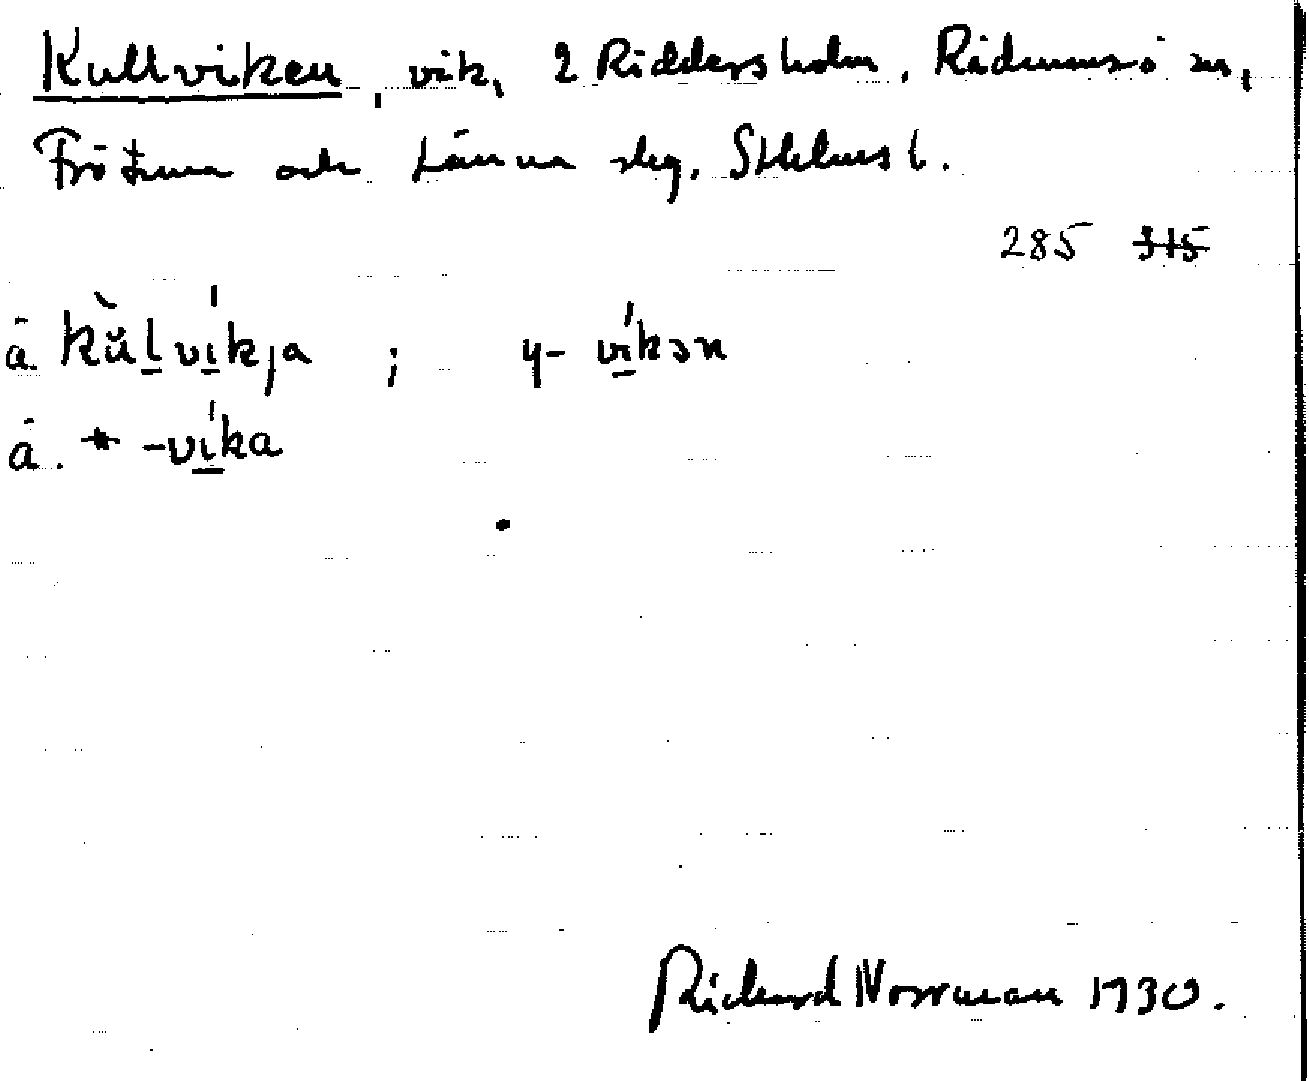 Kullviken, vik, 2 Riddersholm, Rådmansö sn,
Frötuna och Länna slg, Sthlms l.
285 315
ā. kùlvíkja ; y- víkən
ā. * -víka
Richard Norrman 1930.